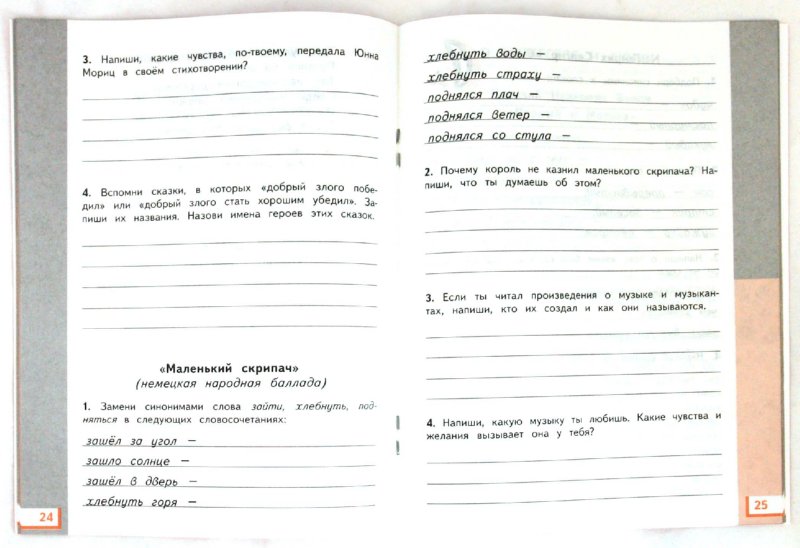 3. Напиши, какие чувства, по-твоему, передала Юнна
Мориц в своём стихотворении?
4. Вспомни сказки, в которых «добрый злого побе-
дил» или «добрый злого стать хорошим убедил». За-
пиши их названия. Назови имена героев этих сказок.
«Маленький скрипач»
(немецкая народная баллада)
1. Замени синонимами слова зайти, хлебнуть, под-
няться в следующих словосочетаниях:
зашёл за угол –
зашло солнце –
зашёл в дверь –
хлебнуть горя –
24
хлебнуть воды –
хлебнуть страху –
поднялся плач –
поднялся ветер –
поднялся со стула –
2. Почему король не казнил маленького скрипача? На-
пиши, что ты думаешь об этом?
3. Если ты читал произведения о музыке и музыкан-
тах, напиши, кто их создал и как они называются.
4. Напиши, какую музыку ты любишь. Какие чувства и
желания вызывает она у тебя?
25